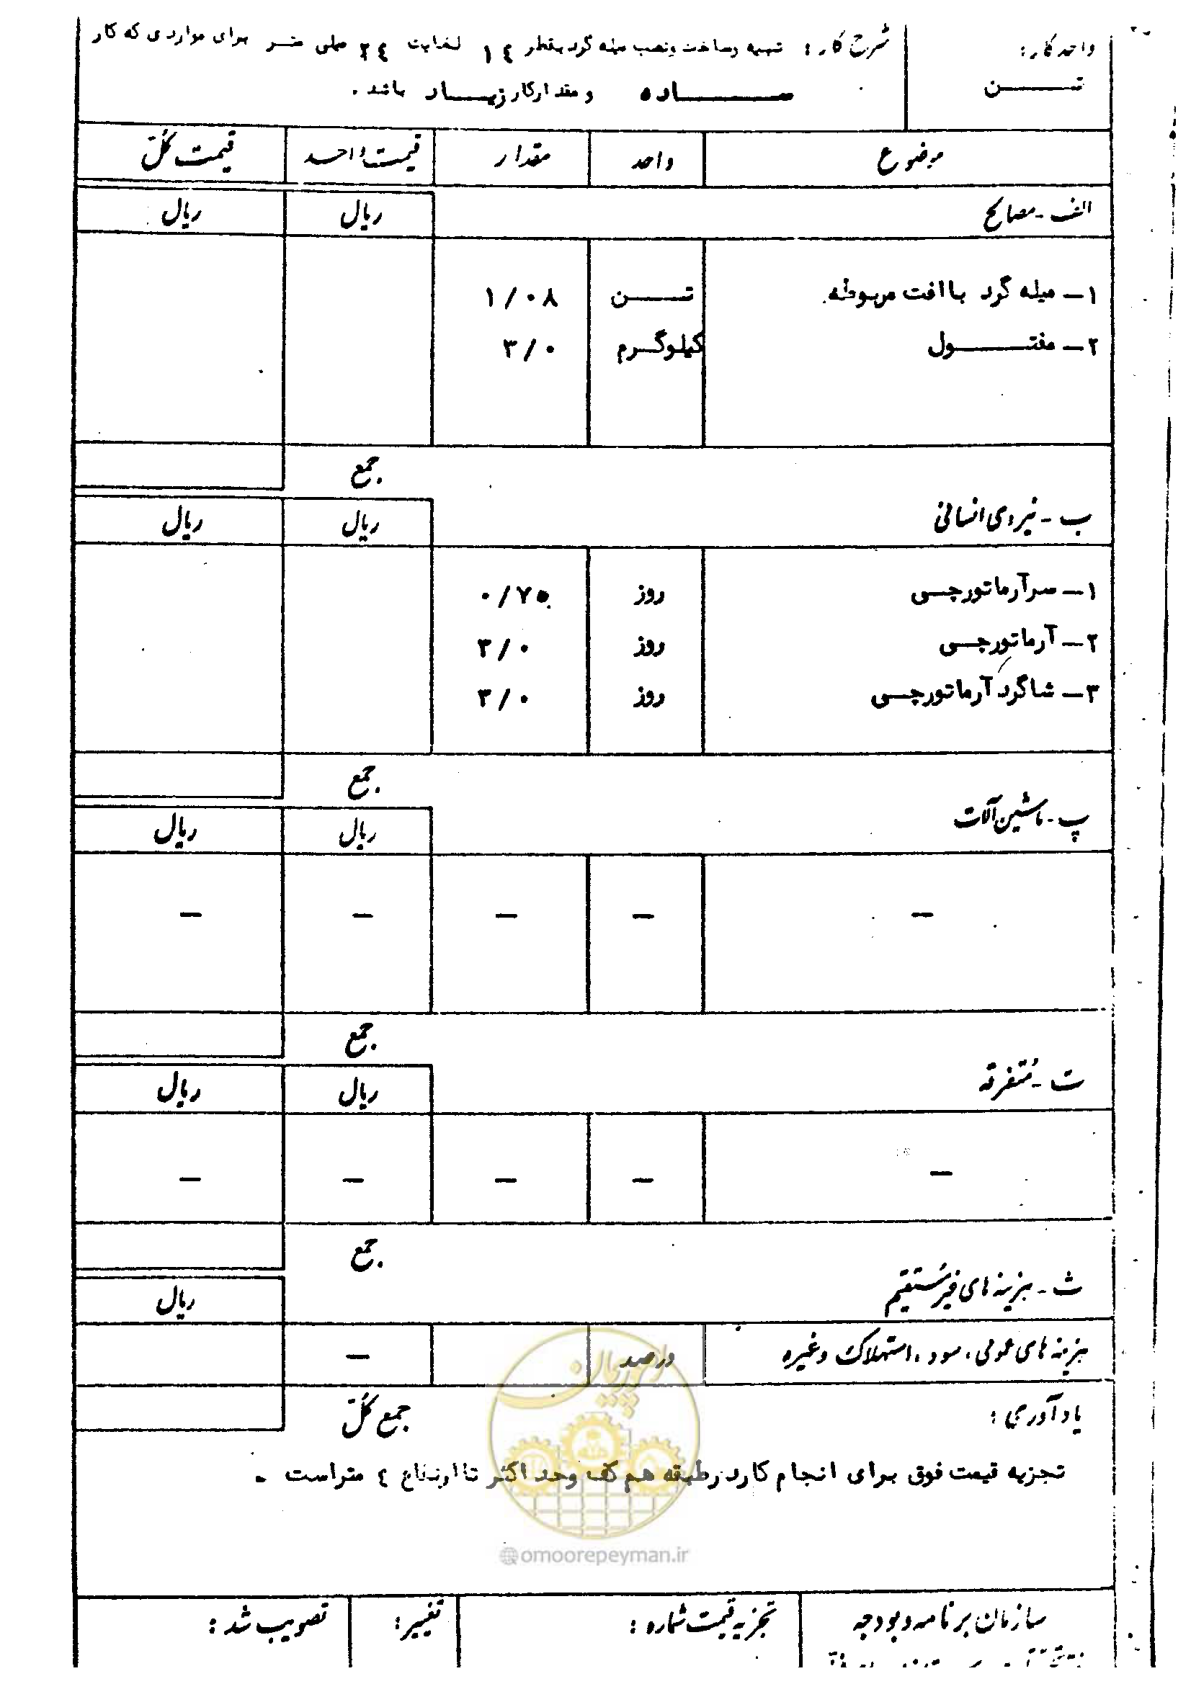 واحد کار:
شرح کار: تهیه وساخت ونصب میله گرد بقطر ١٤ لغایت ٢٤ میلی متر برای مواردی که کار
تن
ساده ومقدارکار زیاد باشد.
موضوع واحد مقدار قیمت واحد قیمت کل
الف - مصالح ریال ریال
۱- میله گرد باافت مربوطه. تن ۱/۰۸
۲- مفتول کیلوگرم ۳/۰
جمع
ب - نیروی انسانی ریال ریال
۱- سرآرماتورچی روز ۰/۷۵
۲- آرماتورچی روز ۳/۰
۳- شاگرد آرماتورچی روز ۳/۰
جمع
پ - ماشین آلات ریال ریال
- - - - -
جمع
ت - متفرقه ریال ریال
- - - - -
جمع
ث - هزینه های غیرمستقیم ریال
هزینه های عمومی، سود، استهلاک وغیره درصد -
یادآوری: جمع کل
تجزیه قیمت فوق برای انجام کاردرطبقه همکف وحداکثر تاارتفاع ٤ متراست -
امور پیمان
@omoorepeyman.ir
سازمان برنامه وبودجه تجزیه قیمت شماره: تغییر: تصویب شد: